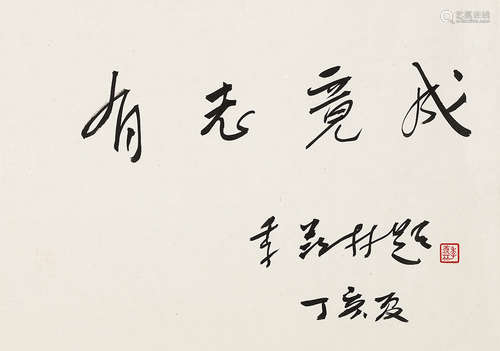 有志竟成
季羡林题
丁亥夏